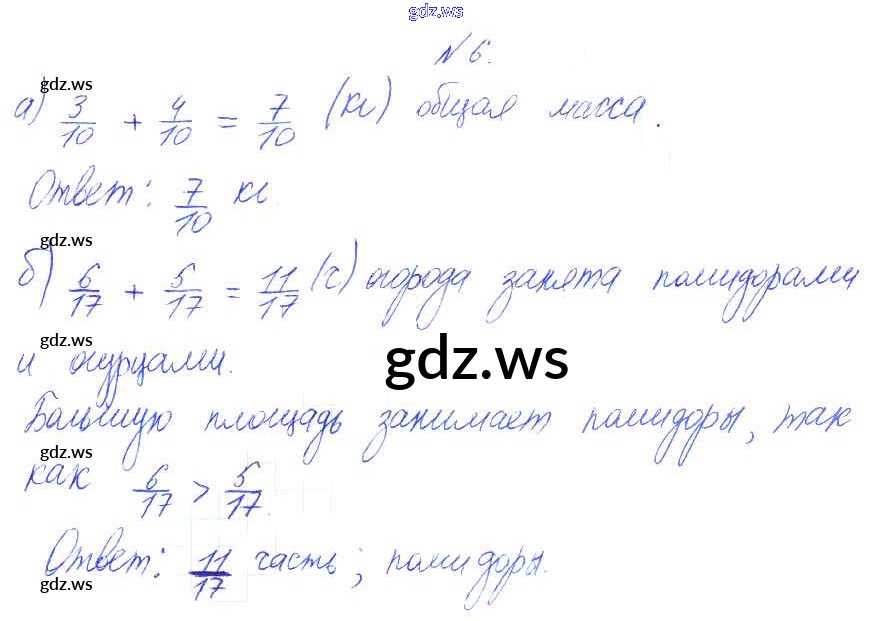 gdz.ws
№ 6.
gdz.ws
а) 3/10 + 4/10 = 7/10 (кг) общая масса.
Ответ: 7/10 кг.
gdz.ws
б) 6/17 + 5/17 = 11/17 (ч) огорода занята помидорами
gdz.ws
и огурцами.
gdz.ws
Большую площадь занимает помидоры, так
gdz.ws
как 6/17 > 5/17.
Ответ: 11/17 часть; помидоры.
gdz.ws